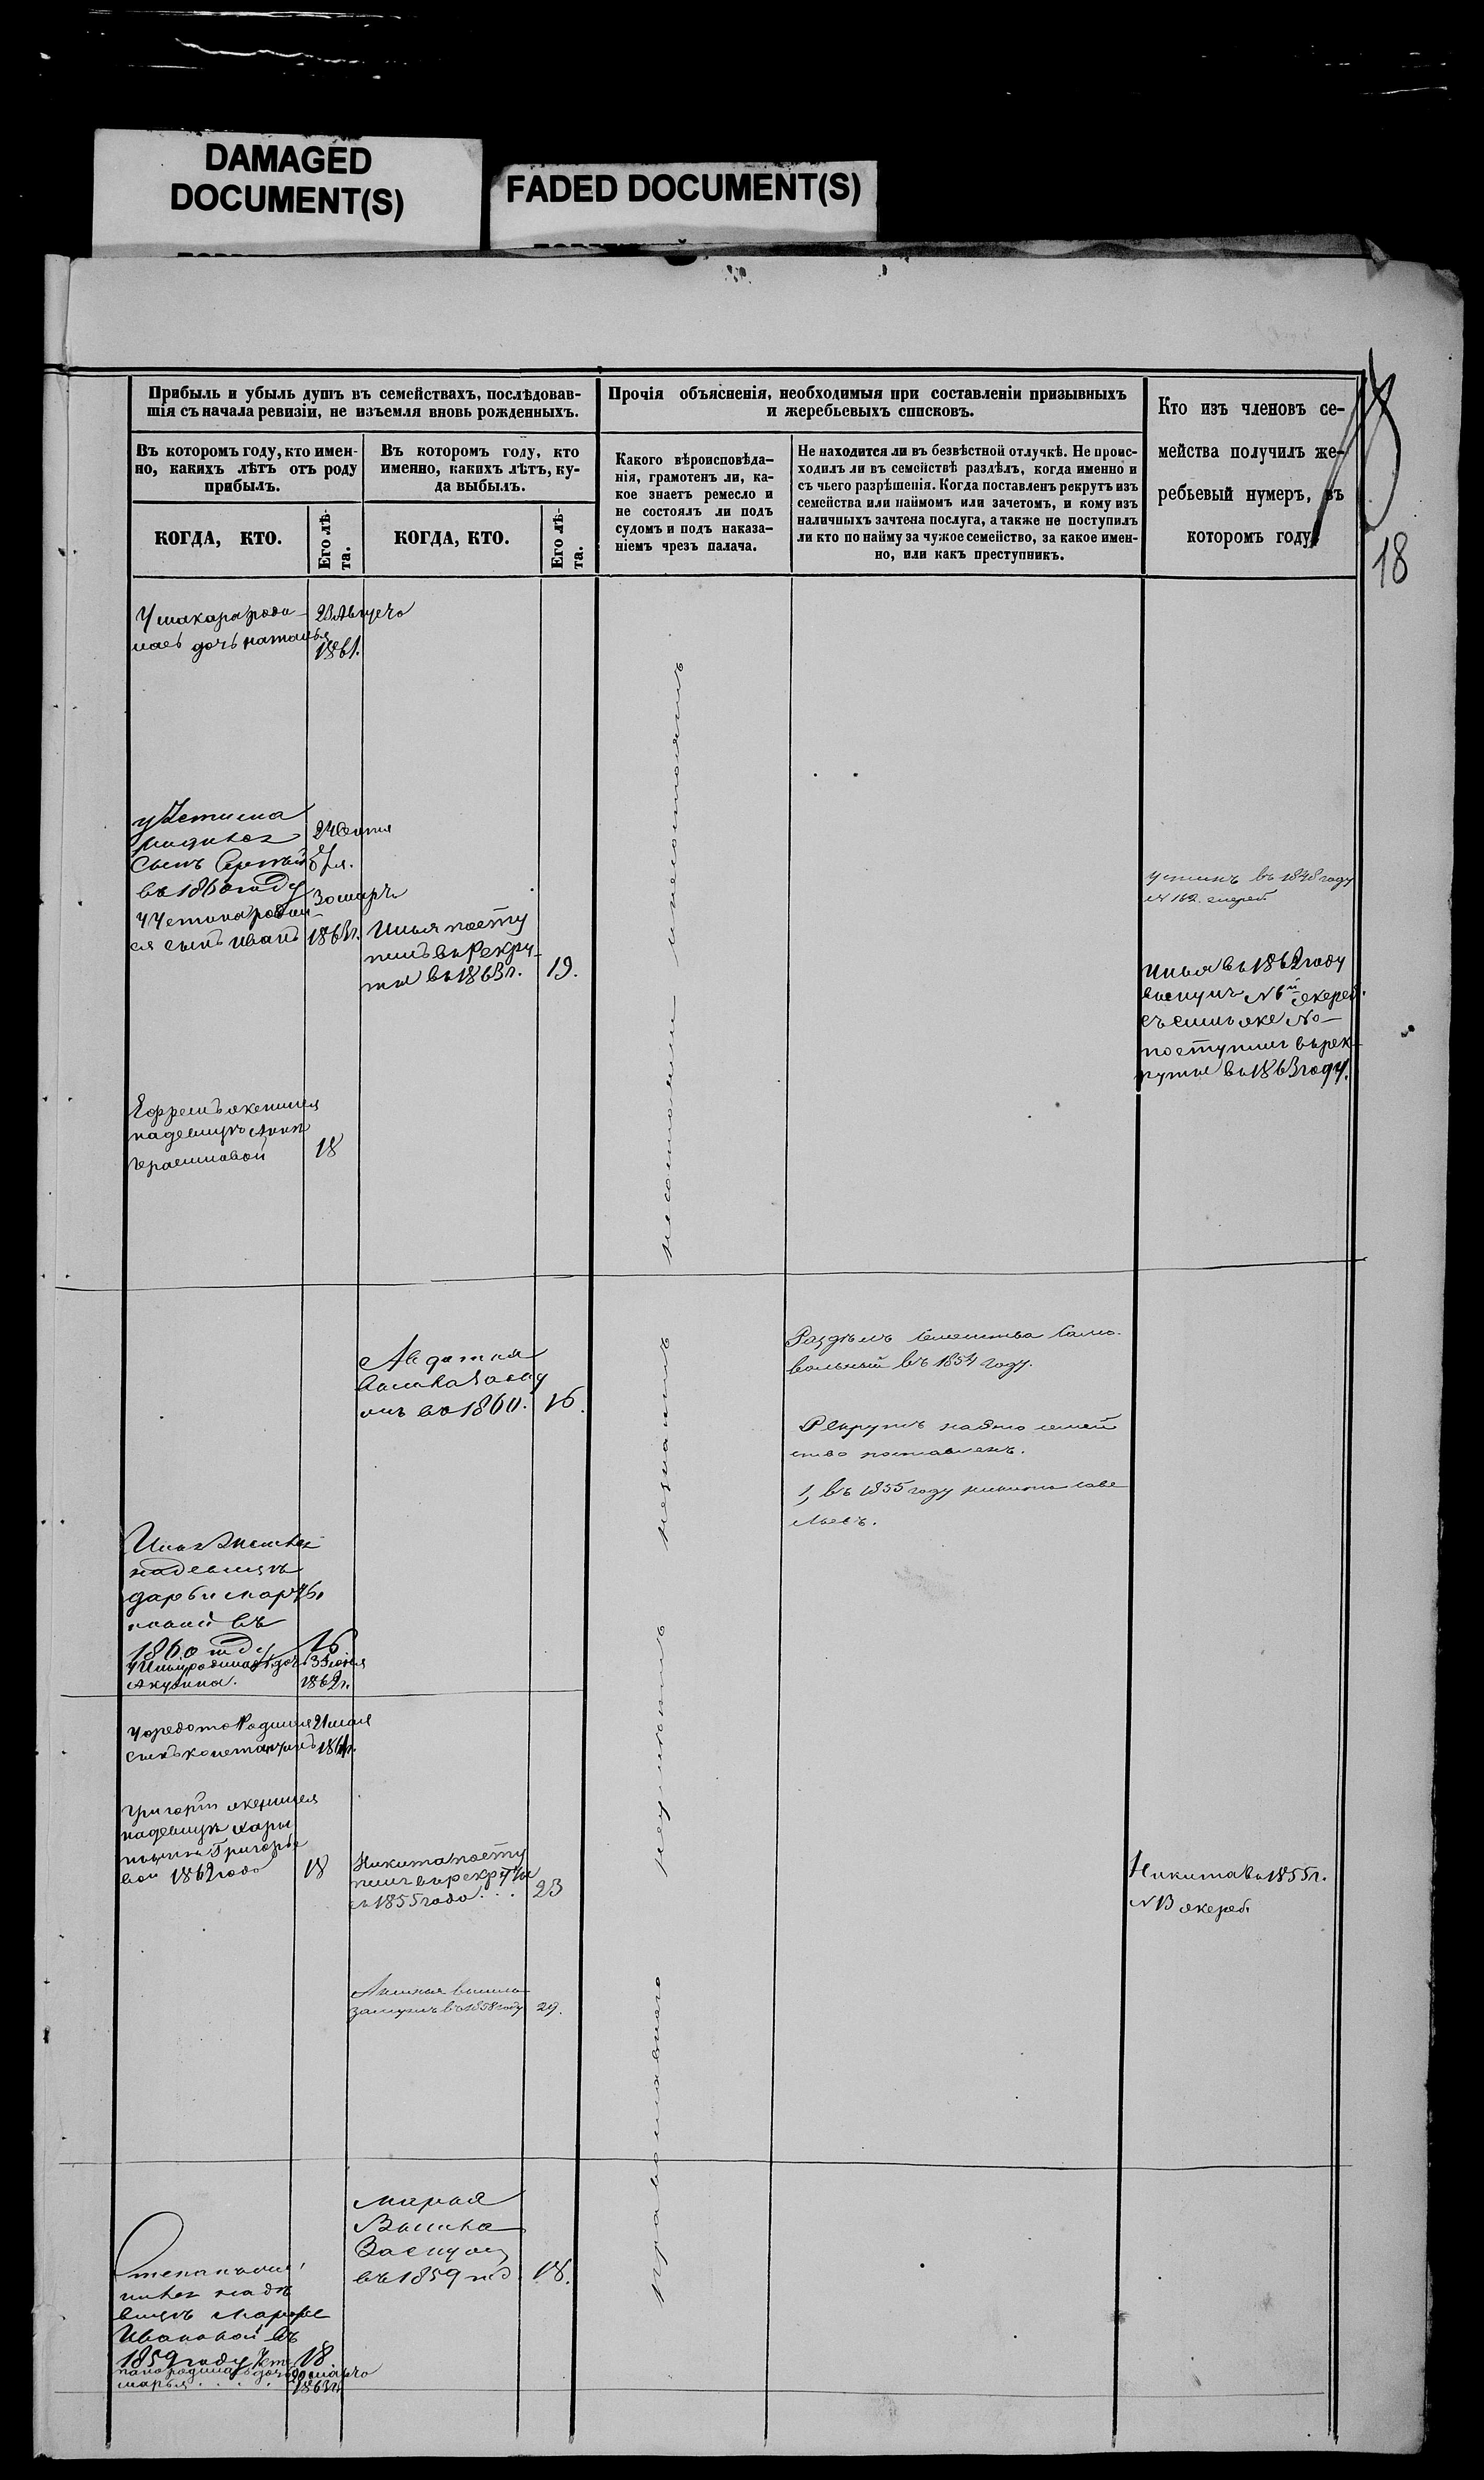 DAMAGED
DOCUMENT(S)
FADED DOCUMENT(S)
Прибыль и убыль душъ въ семействахъ, послѣдовав-
шія съ начала ревизіи, не изъемля вновь рожденныхъ.
Въ которомъ году, кто имен-
но, какихъ лѣтъ отъ роду
прибылъ.
КОГДА, КТО.
Его лѣ-
та.
Въ которомъ году, кто
именно, какихъ лѣтъ, ку-
да выбылъ.
КОГДА, КТО.
Его лѣ-
та.
Прочія объясненія, необходимыя при составленіи призывныхъ
и жеребьевыхъ списковъ.
Какого вѣроисповѣда-
нія, грамотенъ ли, ка-
кое знаетъ ремесло и
не состоялъ ли подъ
судомъ и подъ наказа-
ніемъ чрезъ палача.
Не находится ли въ безвѣстной отлучкѣ. Не проис-
ходилъ ли въ семействѣ раздѣлъ, когда именно и
съ чьего разрѣшенія. Когда поставленъ рекрутъ изъ
семейства или наймомъ или зачетомъ, и кому изъ
наличныхъ зачтена послуга, а также не поступилъ
ли кто по найму за чужое семейство, за какое имен-
но, или какъ преступникъ.
Кто изъ членовъ се-
мейства получилъ же-
ребьевый нумеръ, въ
которомъ году
18
У макара роди
лась дочь наталья
23 Августа
1861.
у Устина
родился
сынъ Сергѣй
въ 1860 году
24 Сентя
бря.
У Устина родил
ся сынъ иванъ
30 марта
1863 г.
Илья посту
пилъ въ Рекру-
ты въ 1863 г.
19.
устинъ въ 1848 году
№ 162 жереб
Илья въ 1862 году
вынулъ № 6й жереб.
съ симъ же №
поступилъ въ рек
руты въ 1863 году.
Ефремъ женился
на девицѣ Анне
герасимовой
18
Авдотья
вышла Замуж
въ 1860.
16.
Раздѣлъ Семейства Само-
вольный въ 1854 году.
Рекрутъ на это семей
ство поставленъ.
1, въ 1855 году никита саве
льевъ.
Илья Женился
на девицѣ
дарьи марты
новой въ
1860 году
16
У Ильи родилась дочь
Акулина.
1862 г.
У федота Родился
сынъ констаньтинъ
21 мая
1861 г.
григорій женился
на девицѣ
Григорье
вой 1862 года
18
Никита посту
пилъ въ рекруты
въ 1855 года . . .
23
Никита въ 1855 г.
№ 13 жереб.
вышла
замужъ въ 1858 году
29.
марья
Вышла
Замуж
въ 1859 год
18.
Степанъ же
нился на дѣ
вицѣ марфе
Ивановой въ
1859 году
18
У сте
пана родилась дочь
марья . . . .
20 марта
1863 г.
православнаго неумѣютъ незнаютъ несостояли инесостоятъ